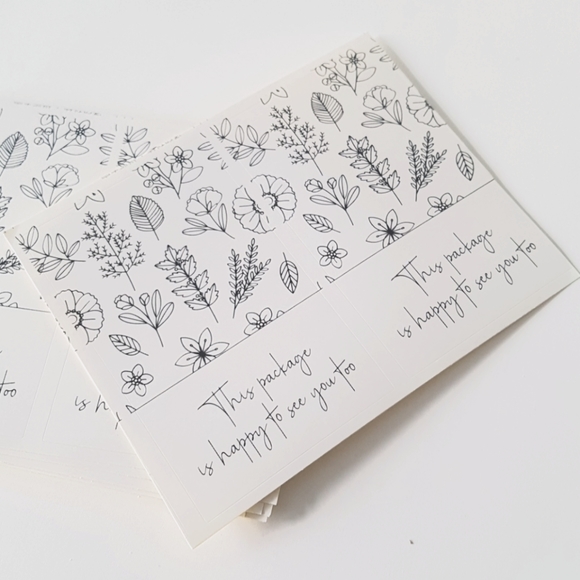 This package
is happy to see you too
This package
is happy to see you too
too
is h